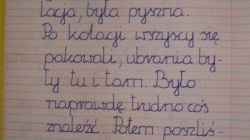 lacja, była pyszna.
Po kolacji wszyscy się
pakowali, ubrania by-
ły tu i tam. Było
naprawdę trudno coś
znaleźć. Potem poszliś-